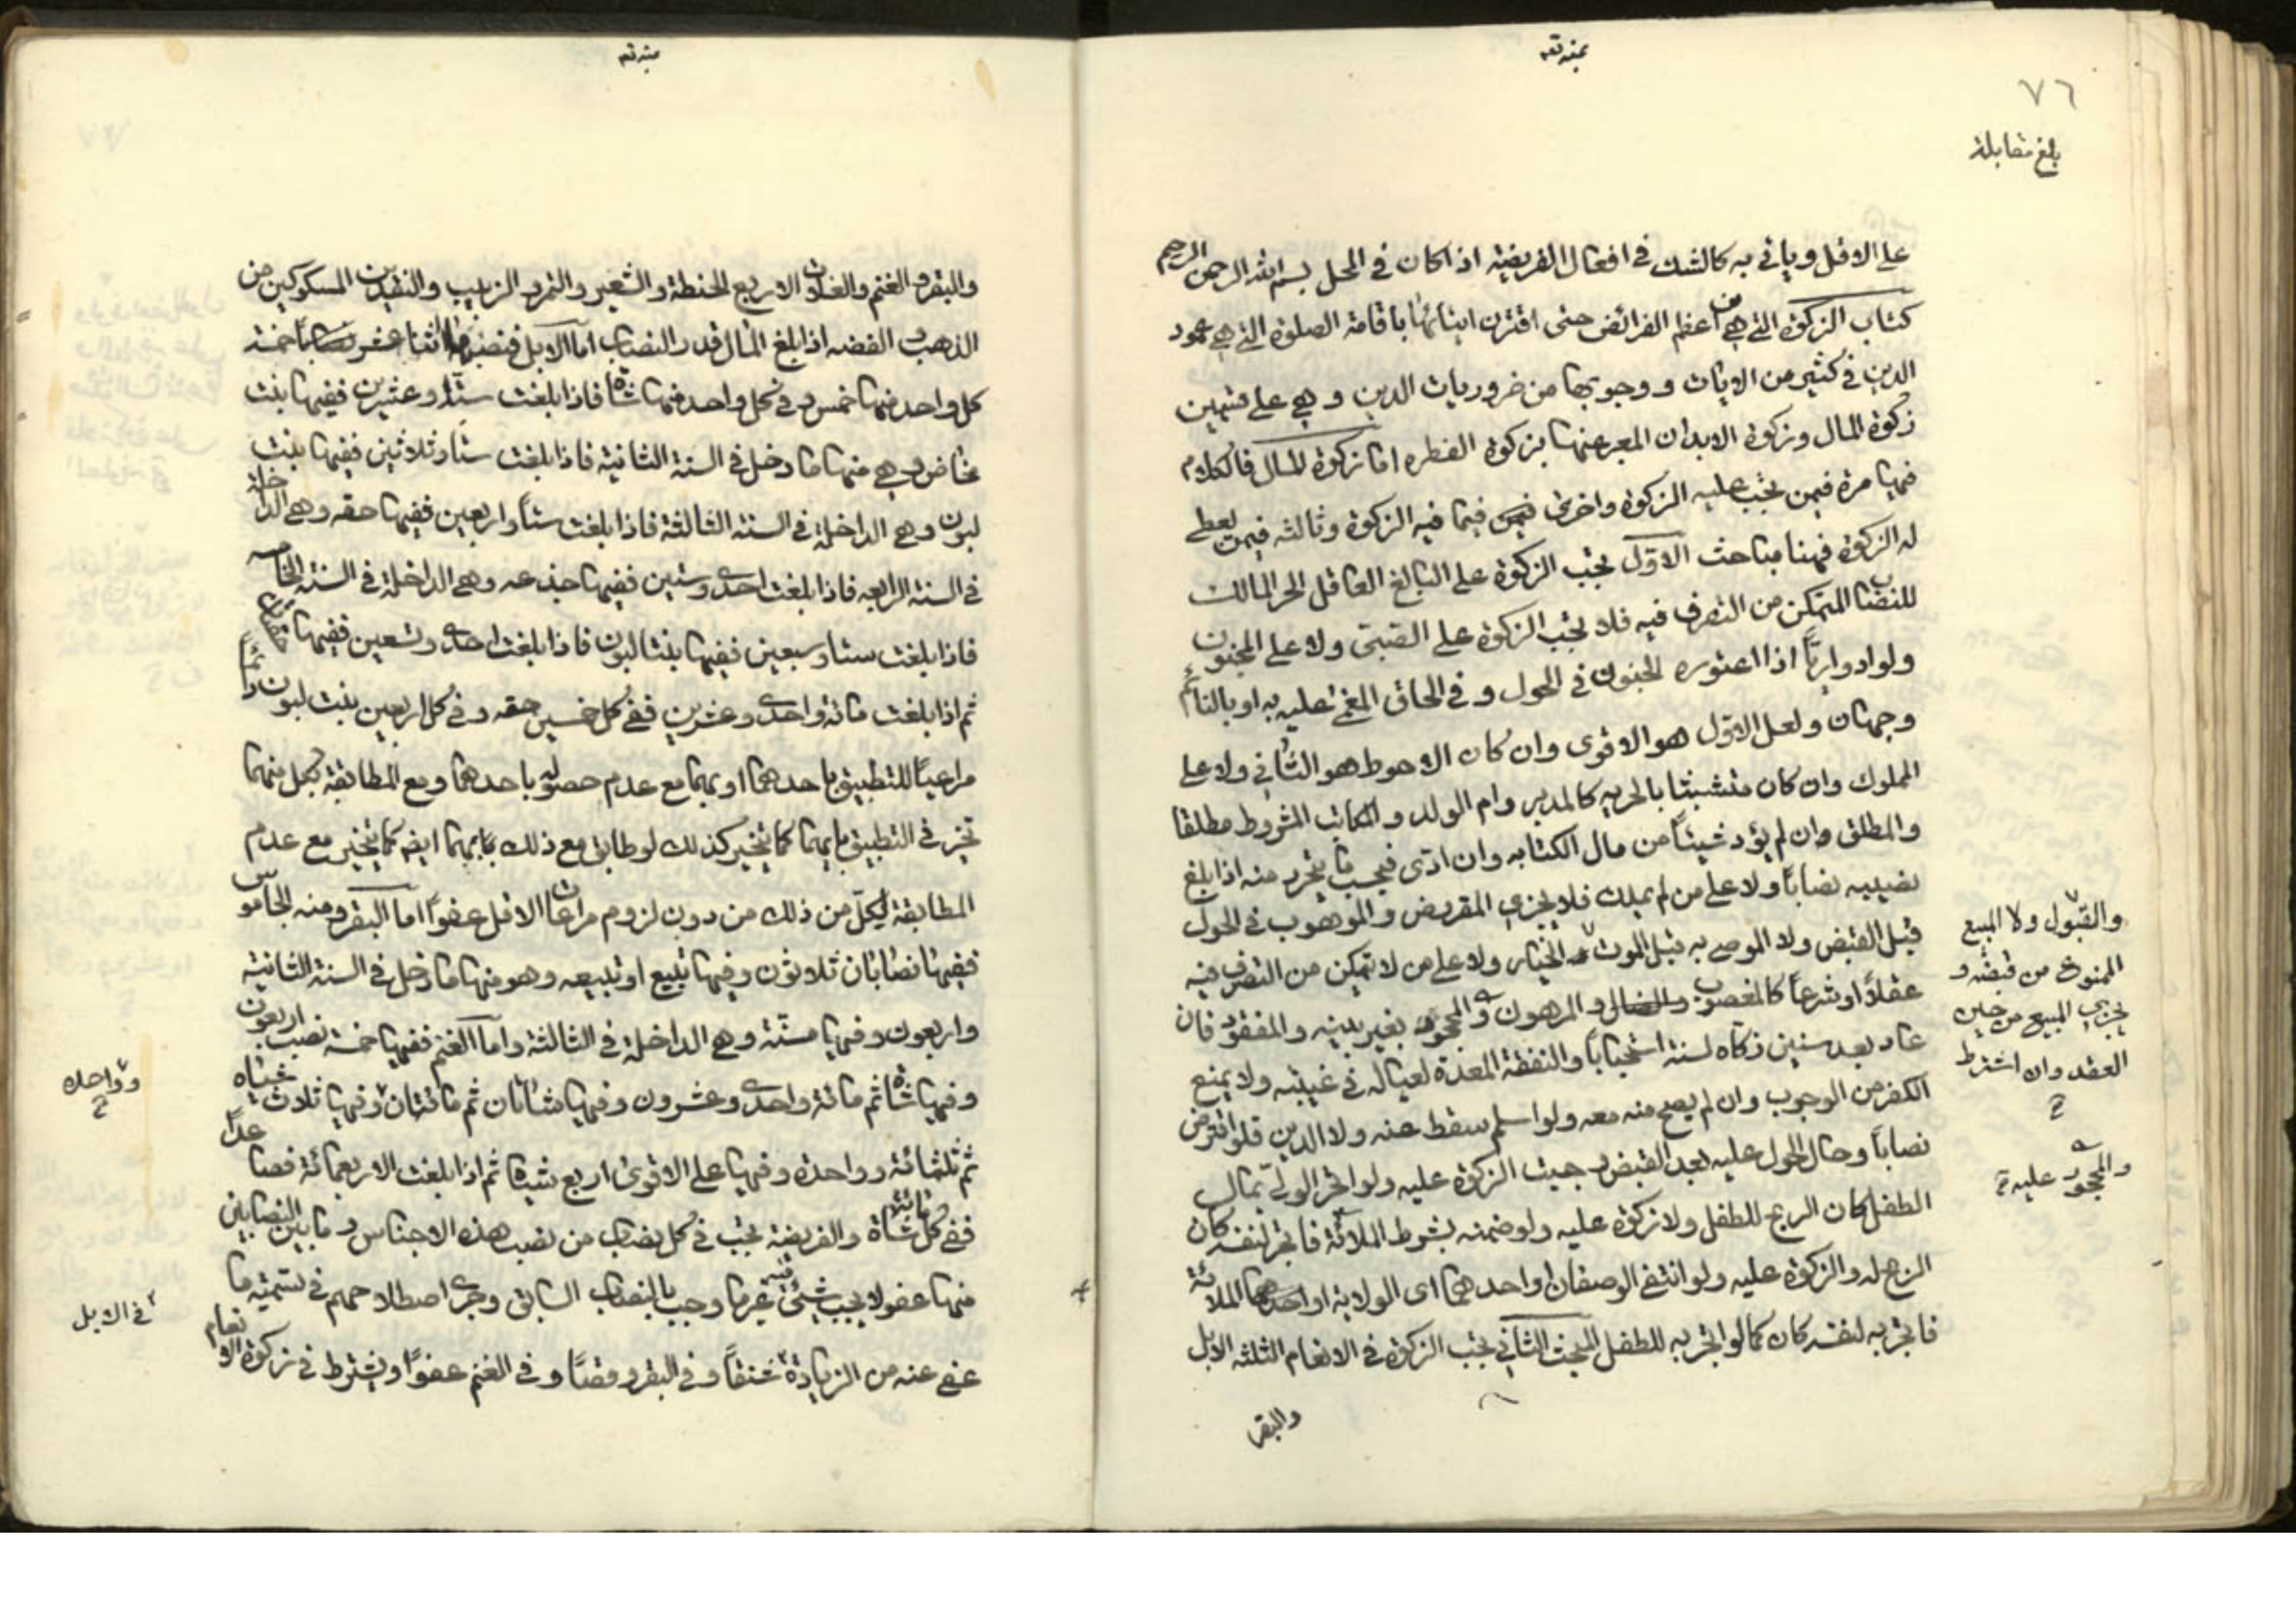 ٧٦
بلغ مقابلة
على الاقل وياتى به كالشك فى افعال الفريضه اذا كان فى المحل بسم الله الرحمن الرحيم
كتاب الزكوة التى هى من اعظم الفرائض حتى اقترن ايتائها باقامة الصلوة التى هى عمود
الدين فى كثير من الايات و وجوبها من ضروريات الدين و هى على قسمين
زكوة المال وزكوة الابدان المعبر عنها بزكوة الفطره اما زكوة المال فالكلام
فيها مرة فيمن يجب عليه الزكوة واخرى فيما فيه الزكوة وثالثه فيمن يعطى
له الزكوة فهنا مباحث الاوّل تجب الزكوة على البالغ العاقل الحر المالك
للنصاب المتمكن من التصرف فيه فلا تجب الزكوة على الصبى ولا على المجنون
ولو ادواريّا اذا اعتوره الجنون فى الحول و فى الحاق المغمى عليه به او بالنائم
وجهان ولعل الاوّل هو الاقوى وان كان الاحوط هو الثانى ولا على
المملوك وان كان متشبثا بالحريه كالمدبر وام الولد و المكاتب المشروط مطلقا
والمطلق وان لم يؤد شيئا من مال الكتابه وان ادّى فيجب ما يتحرر منه اذا بلغ
نصيبه نصابًا ولا على من لم يملك فلا يجزى المقرض والموهوب فى الحول
قبل القبض ولا الموصى به قبل الموت الخيار ولا على من لا تمكن من التصرف فيه
عقلًا او شرعًا كالمغصوب والضال و المرهون و المجحود بغير بينه والمفقود فان
عاد بعد سنين زكاه لسنة استحبابًا والنفقة المعدة لعياله فى غيبته ولا يمنع
الكفر من الوجوب وان لم يصح منه معه ولو اسلم سقط عنه ولا الدين فلو اقترض
نصابًا وحال الحول عليه بعد القبض وجبت الزكوة عليه ولو اتجر الولى بمال
الطفل كان الربح للطفل ولا زكوة عليه ولو ضمنه بشرط الملائة فاتجر لنفسه كان
الربح له والزكوة عليه ولو انتفى الوصفان او احدهما اى الولاية او الملائة
فاتجر به لنفسه كان كما لو اتجر به للطفل المبحث الثانى تجب الزكوة فى الانعام الثلثه الابل
والبقر
والقبول ولا المبيع
الممنوع من قبضه و
يجزى المبيع من حين
العقد وان اشترط
والمحجور عليه
والبقر و الغنم والغلات الاربع الحنطة و الشعير و التمر و الزبيب والنقدين المسكوكين من
الذهب و الفضه اذا بلغ المال قدر النصاب اما الابل فنصبها اثنا عشر نصابًا خمسة
كل واحد منها خمس و فى كل واحد منها شاة فاذا بلغت ستًا وعشرين ففيها بنت
مخاض و هى منها ما دخل فى السنة الثانية فاذا بلغت ستًا وثلاثين ففيها بنت
لبون وهى الداخلة فى السنة الثالثة فاذا بلغت ستًا واربعين ففيها حقه وهى الداخلة
فى السنة الرابعه فاذا بلغت احدى وستين ففيها جذعه وهى الداخلة فى السنة الخامسه
فاذا بلغت ستا وسبعين ففيها بنتا لبون فاذا بلغت احدى وتسعين ففيها حقتان
ثم اذا بلغت مائة واحدى وعشرين ففى كل خمسين حقه و فى كل اربعين بنت لبون دائمًا
مراعيًا للتطبيق باحدهما او بهما مع عدم حصوله باحدهما ومع المطابقة بكل منهما
تخير فى التطبيق بايهما كما يتخير كذلك لو طابق مع ذلك بهما ايضه كما يتخير مع عدم
المطابقة لكل من ذلك من دون لزوم مراعات الاقل عفوًا اما البقر ومنه الجاموس
ففيها نصابان ثلاثون وفيها تبيع او تبيعه وهو منها ما دخل فى السنة الثانية
واربعون وفيها مسنّة وهى الداخلة فى الثالثة واما الغنم ففيها خمسة نصب اربعون
وفيها شاة ثم مائة واحدى وعشرون وفيها شاتان ثم مائتان وفيها ثلاث شياه
ثم ثلثمائة و واحدة وفيها على الاقوى اربع شياه ثم اذا بلغت الاربعمائة فصاعدًا
ففى كل مائة شاة والفريضة تجب فى كل نصاب من نصب هذه الاجناس و ما بين النصابين
منها عفو لا يجب شئ فيه غير ما وجب بالنصاب السابق وجرى اصطلاحهم فى تسميته ما
عفى عنه من الزيادة شنقًا و فى البقر وقصًا و فى الغنم عفوًا ويشترط فى زكوة الانعام
و واحدة
فى الابل